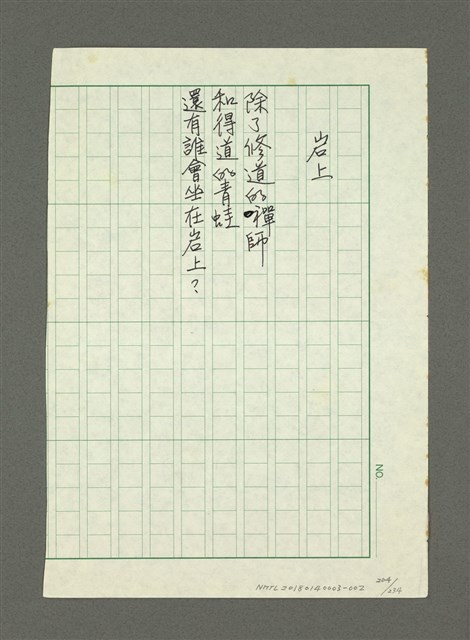 岩上
除了修道的禪師
和得道的青蛙
還有誰會坐在岩上？
NO.
204/234
NMTL20180140003-002